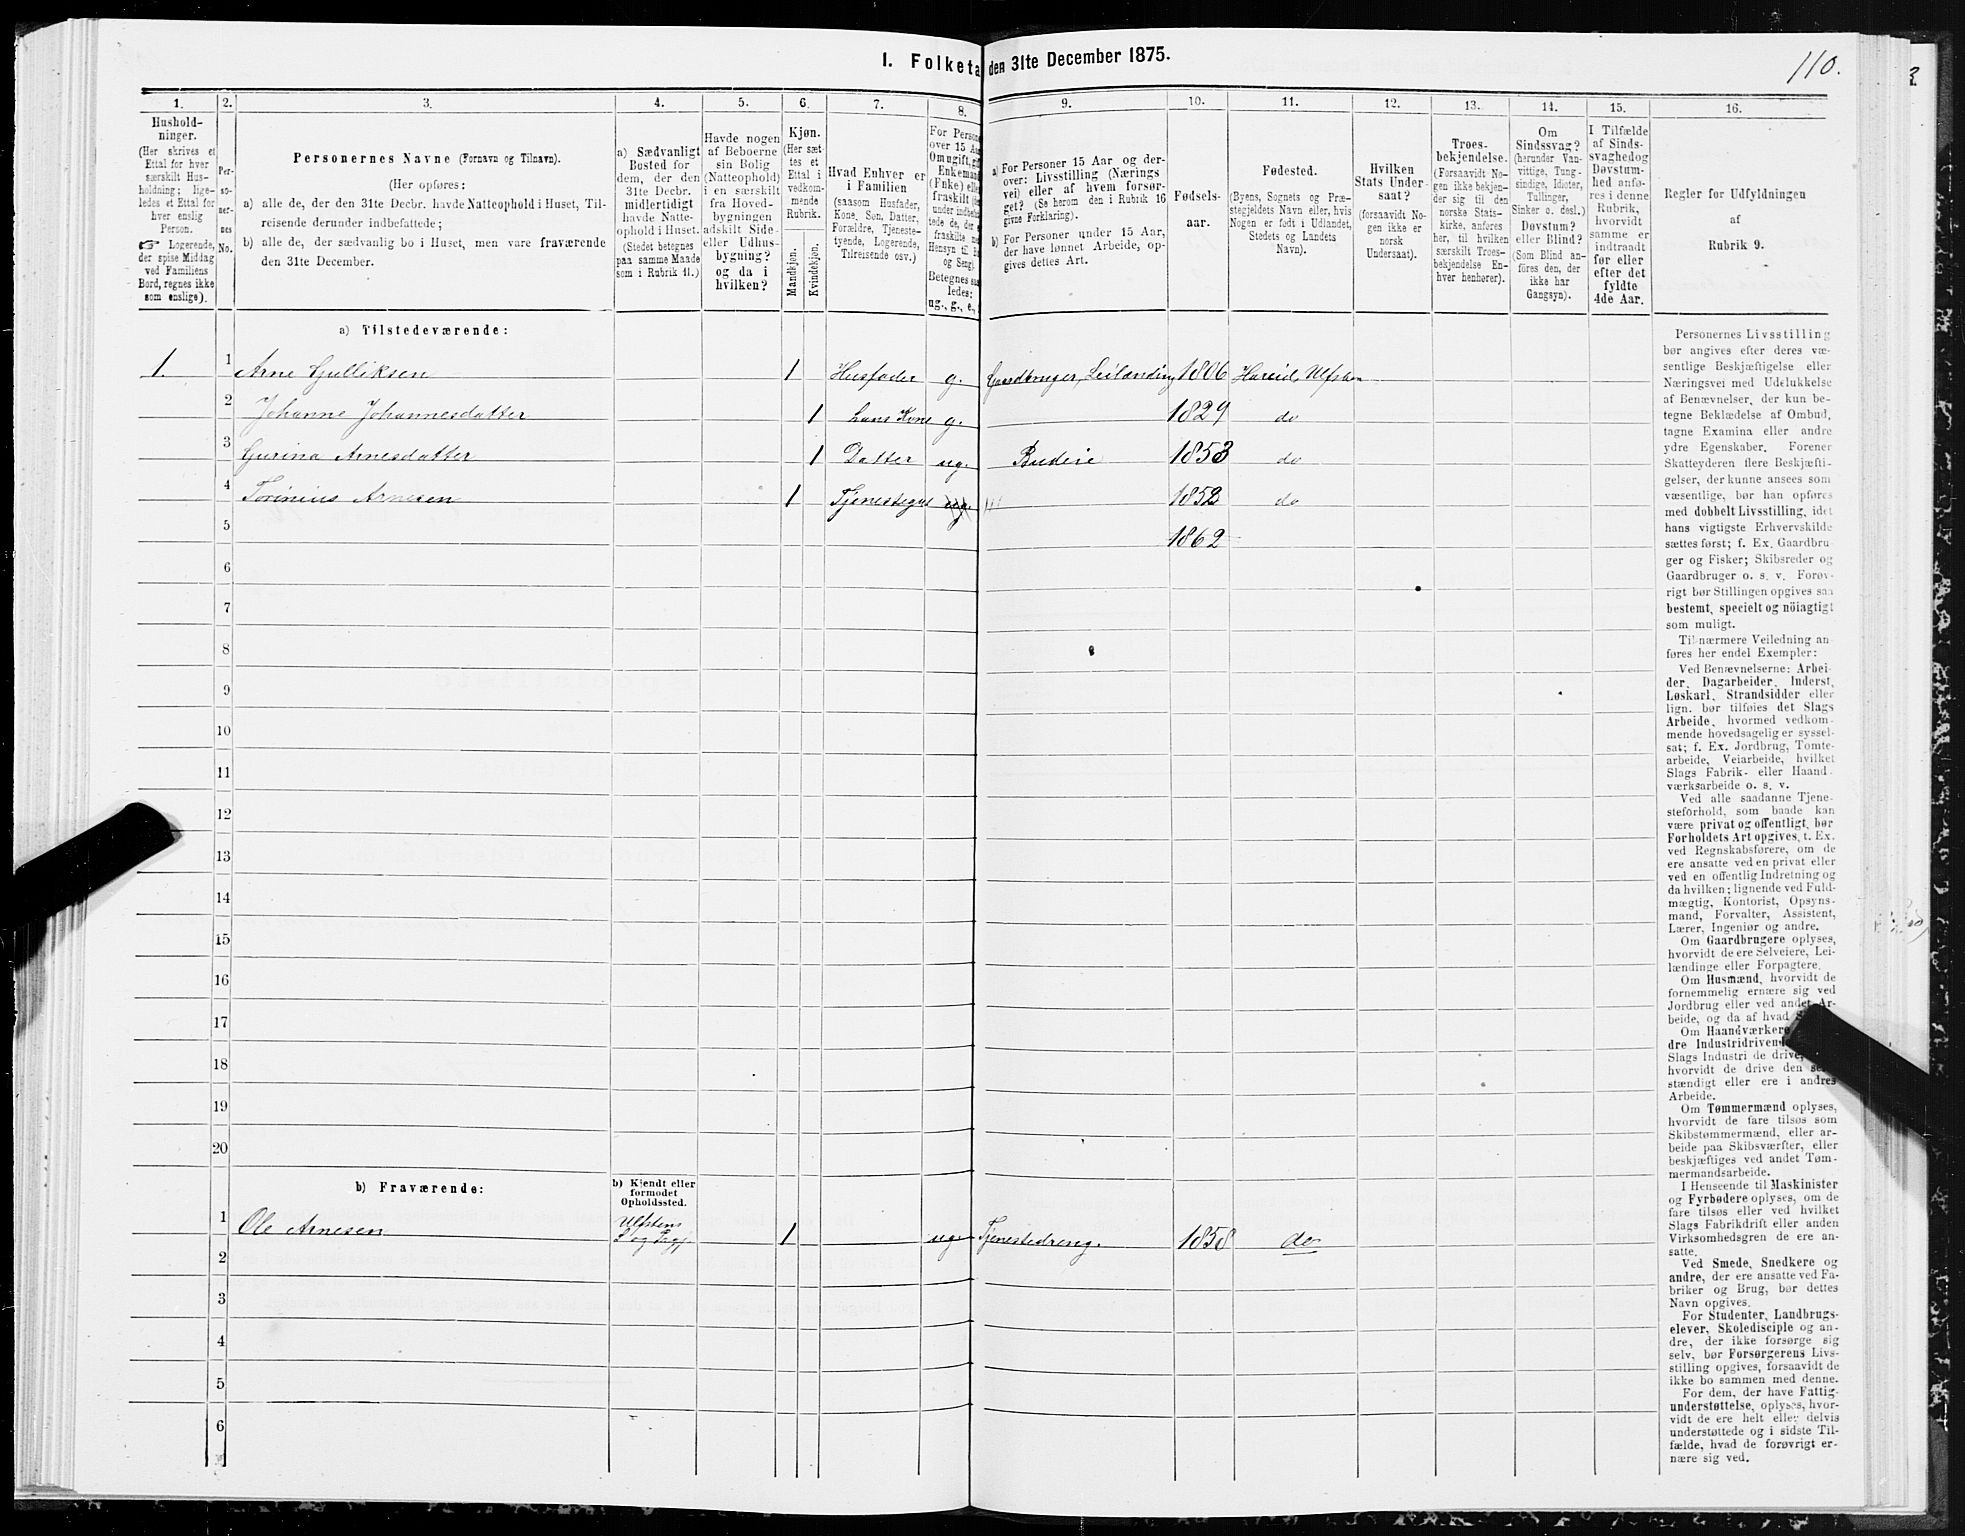 110.
I. Folketa den 31te December 1875.
1. 2. 3. 4. 5. 6. 7. 8. 9. 10. 11. 12. 13. 14. 15. 16.
Hushold-
ninger.
(Her skrives et
Ettal for hver
særskilt Hus-
holdning; lige-
ledes et Ettal for
hver enslig
Person.
☞ Logerende,
der spise Middag
ved Familiens
Bord, regnes ikke
som enslige).
Per-
so-
ner-
nes
No.
Personernes Navne (Fornavn og Tilnavn).
(Her opføres:
a) alle de, der den 31te Decbr. havde Natteophold i Huset, Til-
reisende derunder indbefattede;
b) alle de, der sædvanlig bo i Huset, men vare fraværende
den 31te December.
a) Sædvanligt
Bosted for
dem, der den
31te Decbr.
midlertidigt
havde Natte-
ophold i Huset.
(Stedet betegnes
paa samme Maade
som i Rubrik 11.)
Havde nogen
af Beboerne
sin Bolig
(Natteophold)
i en særskilt
fra Hoved-
bygningen
adskilt Side-
eller Udhus-
bygning?
og da i
hvilken?
Kjøn.
(Her sæt-
tes et
Ettal i
vedkom-
mende
Rubrik.
Mandkjøn.
Kvindekjøn.
Hvad Enhver er
i Familien
(saasom Husfader,
Kone, Søn, Datter,
Forældre, Tjeneste-
tyende, Logerende,
Tilreisende osv.)
For Persone
over 15 Aa
Om ugift, gi
Enkemand
(Enke) elle
fraskilt
under indbefa
tede de, der e
fraskilte
Hensyn til B
og Seng).
Betegnes saa
ledes:
ug., g., e.,
a) For Personer 15 Aar og der-
over: Livsstilling (Nærings
vei) eller af hvem forsør-
get? (Se herom den i Rubrik 16
givne Forklaring).
b) For Personer under 15 Aar,
der have lønnet Arbeide, op-
gives dettes Art.
Fødsels-
aar.
Fødested.
(Byens, Sognets og Præ-
stegjeldets Navn eller, hvis
Nogen er født i Udlandet,
Stedets og Landets
Navn).
Hvilken
Stats Under-
saat?
(forsaavidt No-
gen ikke er
norsk
Undersaat).
Troes-
bekjendelse.
(Forsaavidt No-
gen ikke bekjen-
der sig til den
norske Stats-
kirke, anføres
her, til hvilken
særskilt Troes-
bekjendelse En-
hver henhører).
Om
Sindssvag?
(herunder Van-
vittige, Tung-
sindige, Idioter,
Tullinger,
Sinker o. desl.)
Døvstum?
eller Blind?
(Som Blind an-
føres den, der
ikke har
Gangsyn).
I Tilfælde
af Sinds-
svaghed og
Døvstum-
hed anfø-
res i denne
Rubrik,
hvorvidt
samme er
indtraadt
før eller
efter det
fyldte
4de Aar.
Regler for Udfyldningen
af
Rubrik 9.
a) Tilstedeværende:
1. 1 Arne Gulliksen 1 Husfader g. Gaardbruger, Leilænding 1806 Hareid, Ulfsten
2 Johanne Johannesdatter 1 hans Kone g. 1829 do
3 Gurina Arnesdatter 1 Datter ug. Budeie 1853 do
4 Torinius Arnesen 1 Tjenestegut ug. 1852 do
5 1862
6
7
8
9
10
11
12
13
14
15
16
17
18
19
20
b) Fraværende:
b) Kjendt eller
formodet
Opholdssted.
1 Ole Arnesen Ulfstens S og Prgj. 1 ug. Tjenestedreng. 1858 do
2
3
4
5
6
Personernes Livsstilling
bør angives efter deres væ-
sentlige Beskjæftigelse eller
Næringsvei med Udelukkelse
af Benævnelser, der kun be-
tegne Beklædelse af Ombud,
tagne Examina eller andre
ydre Egenskaber. Forener
Skatteyderen flere Beskjæfti-
gelser, der kunne ansees som
væsentlige, bør han opføres
med dobbelt Livsstilling, idet
hans vigtigste Erhvervskilde
sættes først; f. Ex. Gaardbru-
ger og Fisker; Skibsreder og
Gaardbruger o. s. v. Forøv-
rigt bør Stillingen opgives saa
bestemt, specielt og nøiagtigt
som muligt.
Til nærmere Veiledning an-
føres her endel Exempler:
Ved Benævnelserne: Arbei-
der, Dagarbeider, Inderst,
Løskarl, Strandsidder eller
lign. bør tilføies det Slags
Arbeide, hvormed vedkom-
mende hovedsagelig er syssel-
sat; f. Ex. Jordbrug, Tomte-
arbeide, Veiarbeide, hvilket
Slags Fabrik- eller Haand-
værksarbeide o. s. v.
Ved alle saadanne Tjene-
steforhold, som baade kan
være privat og offentligt, bør
Forholdets Art opgives, t. Ex.
ved Regnskabsførere, om de
ere ansatte ved en privat eller
ved en offentlig Indretning og
da hvilken; lignende ved Fuld-
mægtig, Kontorist, Opsyns-
mand, Forvalter, Assistent,
Lærer, Ingeniør og andre.
Om Gaardbrugere oplyses,
hvorvidt de ere Selveiere, Lei-
lændinge eller Forpagtere.
Om Husmænd, hvorvidt de
fornemmelig ernære sig ved
Jordbrug eller ved andet Ar-
beide, og da af hvad S
Om Haandværkere
dre Industridrivend
Slags Industri de drive,
hvorvidt de drive den sel
stændigt eller ere i andres
Arbeide.
Om Tømmermænd oplyses,
hvorvidt de fare tilsøs som
Skibstømmermænd, eller ar-
beide paa Skibsværfter, eller
beskjæftiges ved andet Tøm-
mermandsarbeide.
I Henseende til Maskinister
og Fyrbødere oplyses, om de
fare tilsøs eller ved hvilket
Slags Fabrikdrift eller anden
Virksomhedsgren de ere an-
satte.
Ved Smede, Snedkere og
andre, der ere ansatte ved Fa-
briker og Brug, bør dettes
Navn opgives.
For Studenter, Landbrugs-
elever, Skoledisciple og an-
dre, der ikke forsørge sig
selv, bør Forsørgerens Livs-
stilling opgives, forsaavidt de
ikke bo sammen med denne.
For dem, der have Fattig-
understøttelse, oplyses, hvor-
vidt de ere helt eller delvis
understøttede og i sidste Til-
fælde, hvad de forøvrigt er-
nære sig ved.